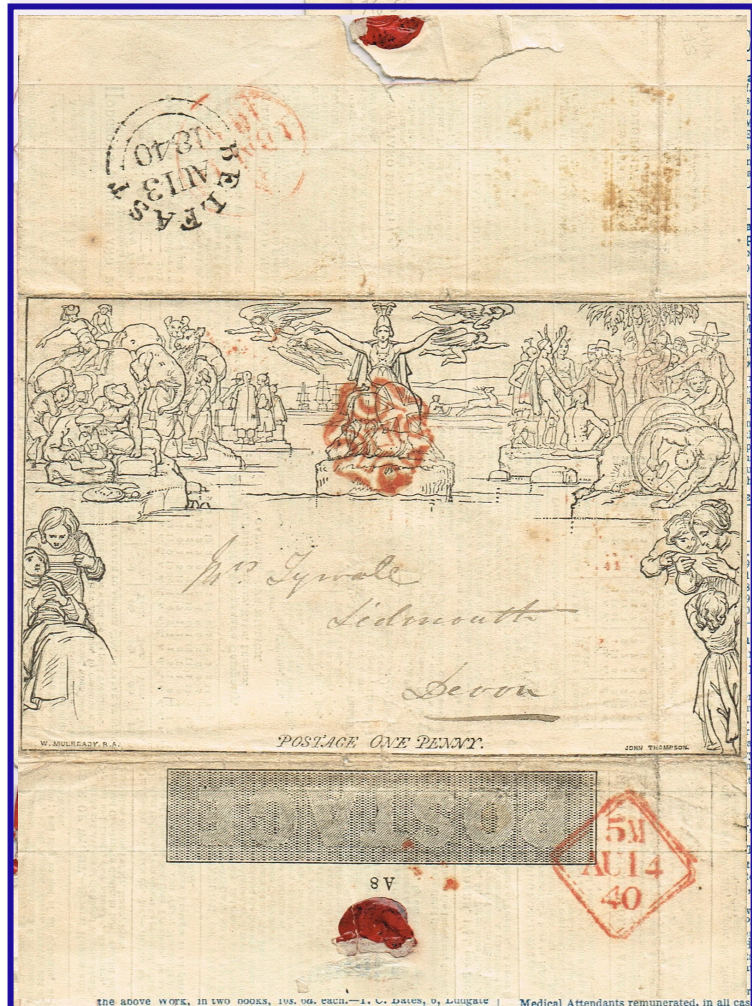 BELFAST
AU 13
1840
Sidmouth
Devon
W. MULREADY. R.A.
POSTAGE ONE PENNY.
JOHN THOMPSON.
POSTAGE
5M
AU 14
40
A8
the above Work, in two books, 10s. 6d. each.—T. C. Bates, 6, Ludgate
Medical Attendants remunerated, in all cas